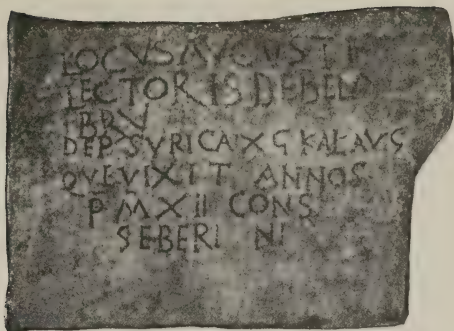 LOCVS AVGVSTI
LECTORIS DEBELA
BRV
DEP SVRICA XG KAL AVG
QVE VIXIT ANNOS
P M X II CONS
SEBERI NI